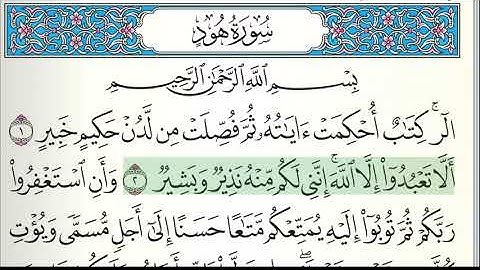 سُورَةُ هُودٍ
بِسْمِ ٱللَّهِ ٱلرَّحْمَٰنِ ٱلرَّحِيمِ
الٓر ۚ كِتَٰبٌ أُحْكِمَتْ ءَايَٰتُهُۥ ثُمَّ فُصِّلَتْ مِن لَّدُنْ حَكِيمٍ خَبِيرٍ ١
أَلَّا تَعْبُدُوٓا۟ إِلَّا ٱللَّهَ ۚ إِنَّنِى لَكُم مِّنْهُ نَذِيرٌ وَبَشِيرٌ ٢ وَأَنِ ٱسْتَغْفِرُوا۟
رَبَّكُمْ ثُمَّ تُوبُوٓا۟ إِلَيْهِ يُمَتِّعْكُم مَّتَٰعًا حَسَنًا إِلَىٰٓ أَجَلٍ مُّسَمًّى وَيُؤْتِ